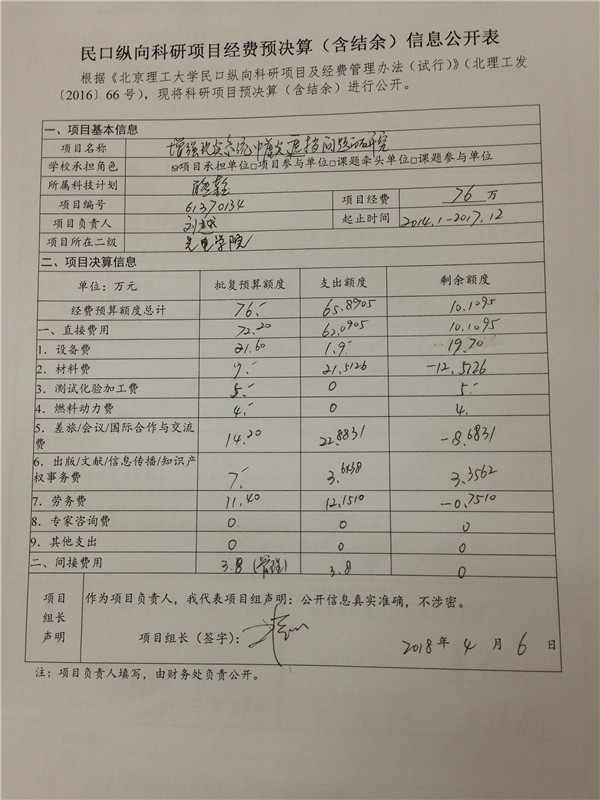 民口纵向科研项目经费预决算（含结余）信息公开表
根据《北京理工大学民口纵向科研项目及经费管理办法（试行）》（北理工发
〔2016〕66 号），现将科研项目预决算（含结余）进行公开。
一、项目基本信息
项目名称 增强现实系统中虚实遮挡问题的研究
学校承担角色 ☑项目承担单位□项目参与单位□课题牵头单位□课题参与单位
所属科技计划
项目编号 61370134 项目经费 76 万
项目负责人 刘越 起止时间 2014.1-2017.12
项目所在二级 光电学院
二、项目决算信息
单位：万元 批复预算额度 支出额度 剩余额度
经费预算额度总计 76.- 65.8905 10.1095
一、直接费用 72.20 62.0905 10.1095
1．设备费 21.60 1.9- 19.70
2．材料费 9.- 21.5126 -12.5126
3．测试化验加工费 5.- 0 5.-
4．燃料动力费 4.- 0 4.
5．差旅/会议/国际合作与交流
费 14.20 22.8831 -8.6831
6．出版/文献/信息传播/知识产
权事务费 7.- 3.6438 3.3562
7．劳务费 11.40 12.1510 -0.7510
8．专家咨询费 0. 0 0
9．其他支出 0 0 0
二、间接费用 3.8（管理） 3.8 0
项目
组长
声明
作为项目负责人，我代表项目组声明：公开信息真实准确，不涉密。
项目组长（签字）：
2018 年 4 月 6 日
注：项目负责人填写，由财务处负责公开。